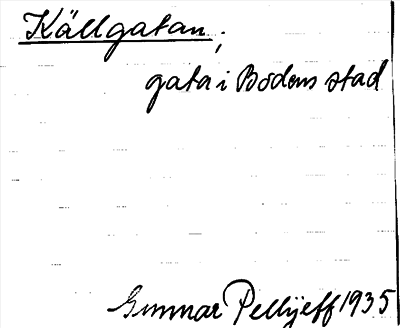 Källgatan;
gata i Bodens stad
Gunnar Pellijeff 1935